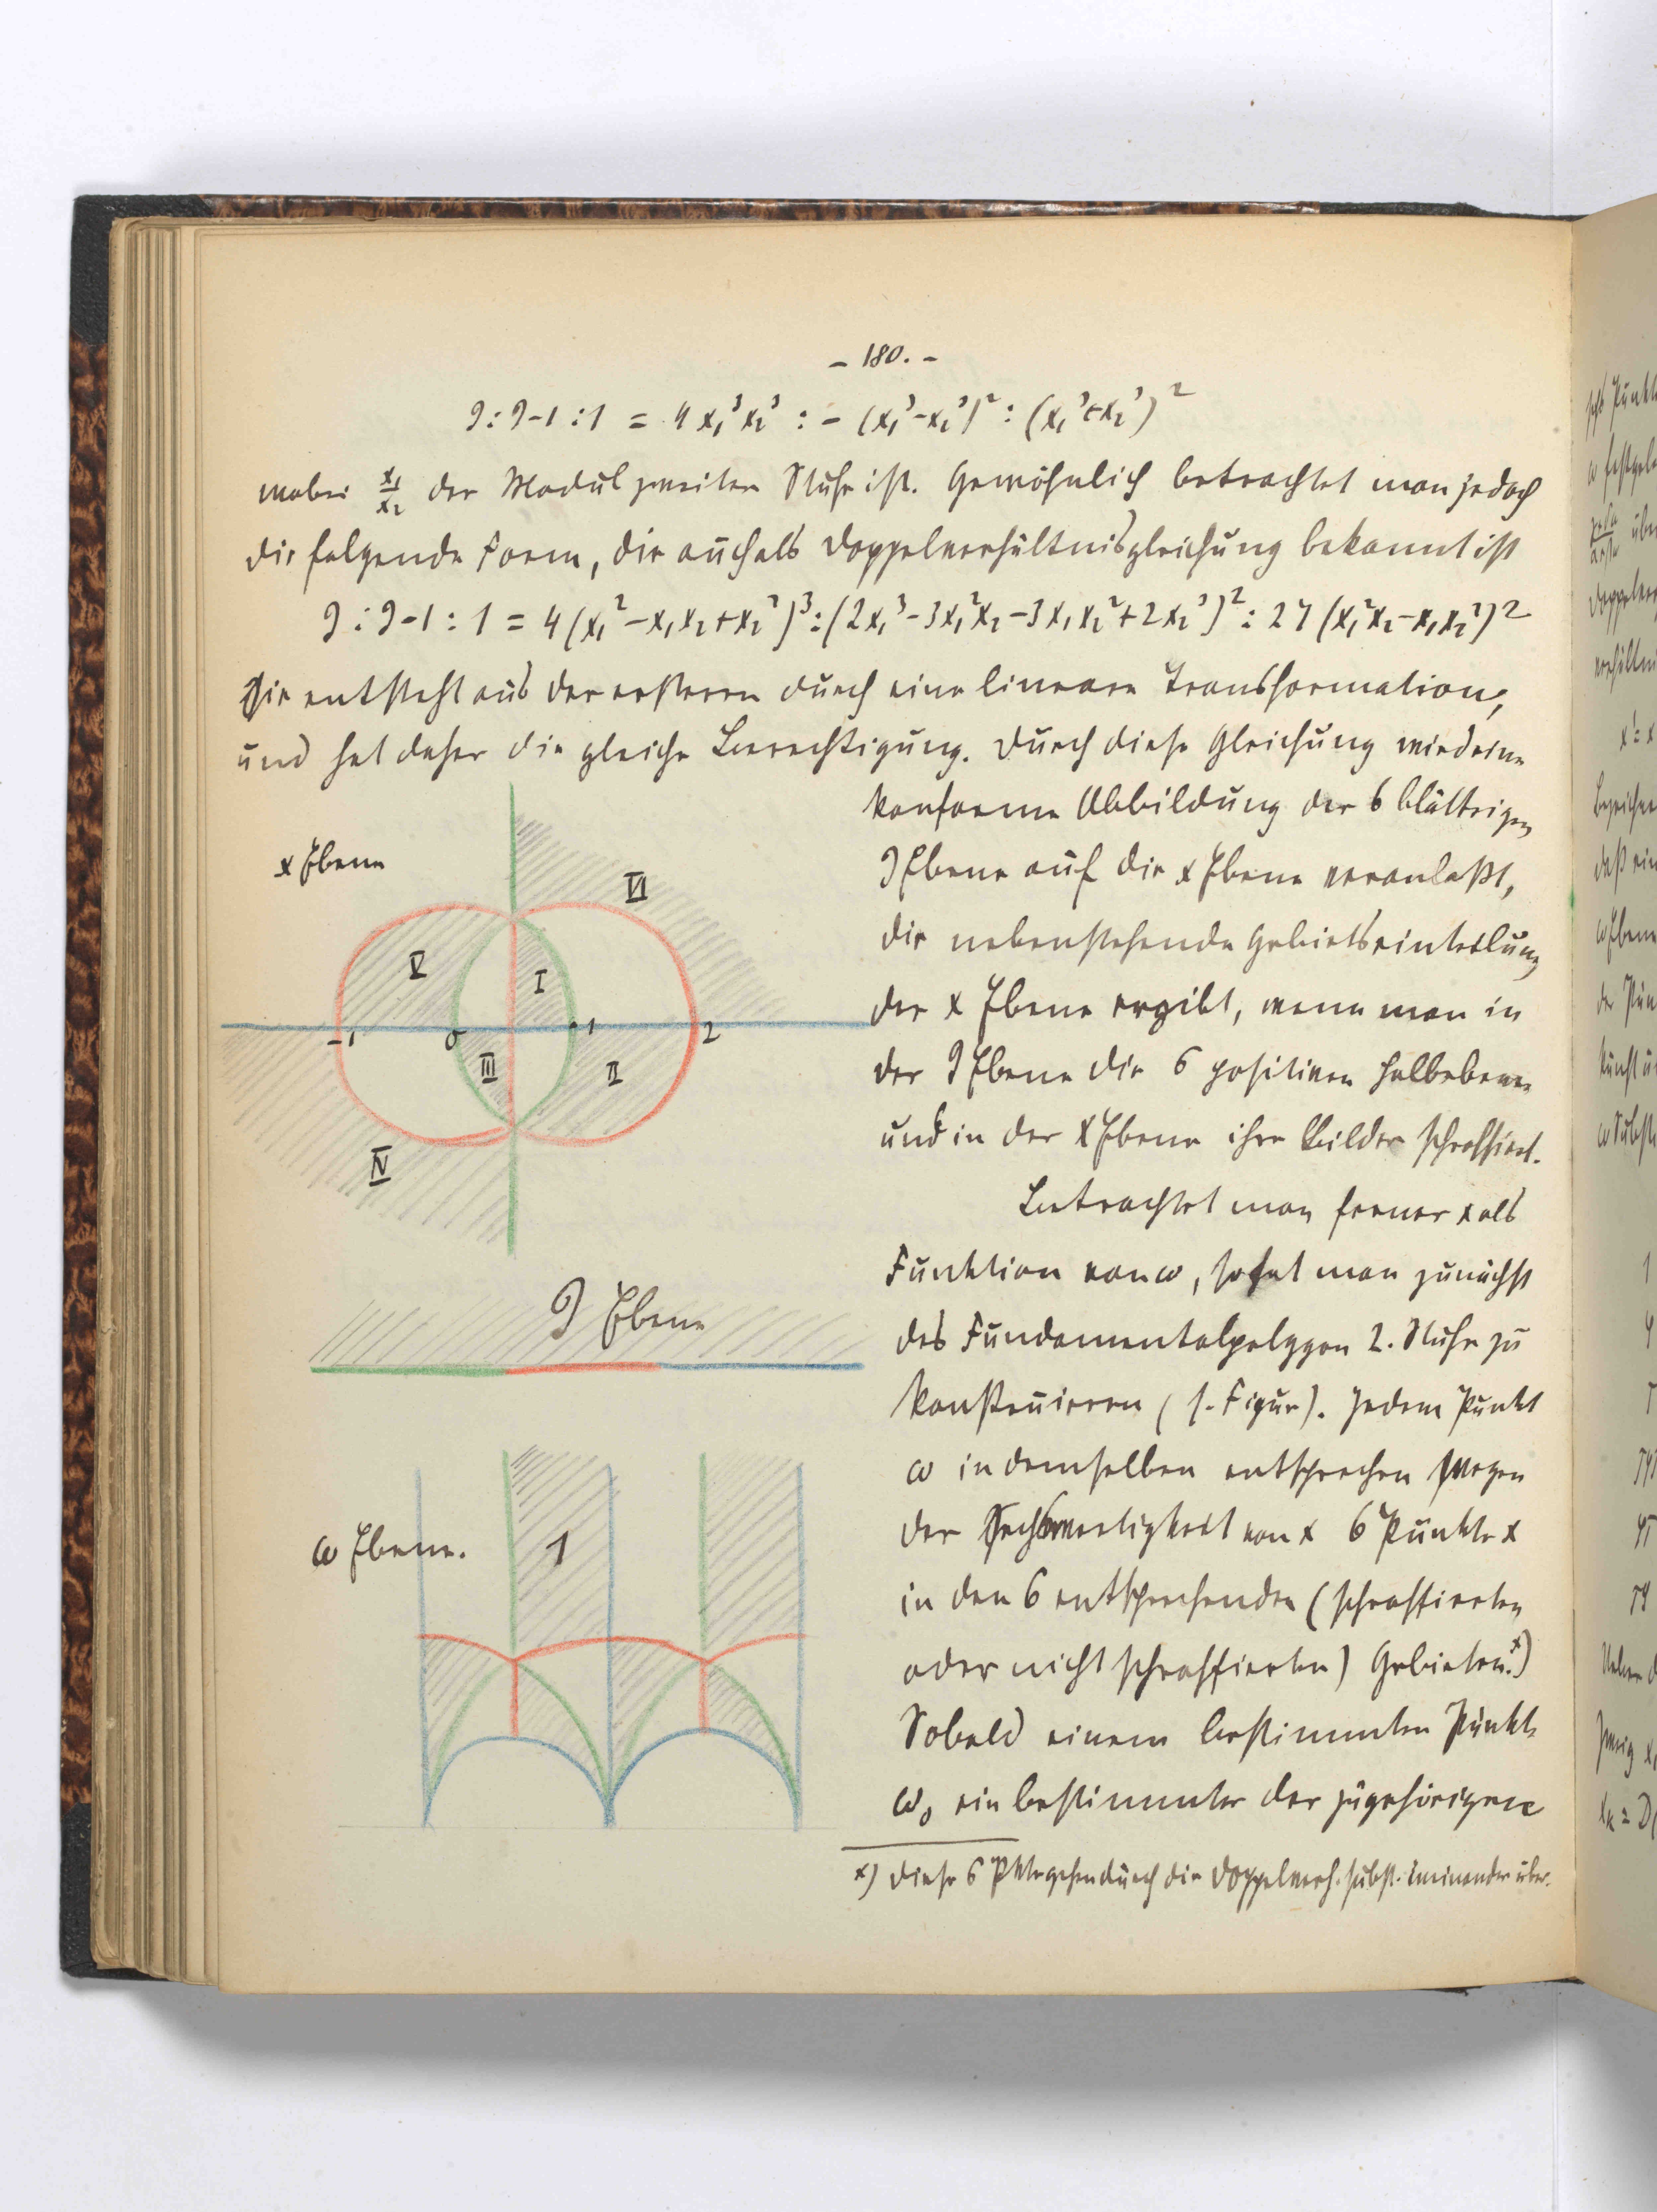 - 180. -
J : J-1 : 1 = 4 x₁³x₂³ : - (x₁³-x₂³)² : (x₁³+x₂³)²
wobei x₁/x₂ der Modul zweiter Stufe ist. Gewöhnlich betrachtet man jedoch
die folgende Form, die auch als Doppelverhältnisgleichung bekannt ist
J : J-1 : 1 = 4 (x₁²-x₁x₂+x₂²)³ : (2x₁³-3x₁²x₂-3x₁x₂²+2x₂³)² : 27 (x₁²x₂-x₁x₂²)²
Sie entsteht aus der ersteren durch eine lineare Transformation,
und hat daher die gleiche Berechtigung. Durch diese Gleichung wird eine
konforme Abbildung der 6 blättrigen
J Ebene auf die x Ebene veranlaßt,
die nebenstehende Gebietseinteilung
der x Ebene ergibt, wenn man in
der J Ebene die 6 positiven Halbebenen
und in der x Ebene ihre Bilder schraffiert.
x Ebene
VI
V
I
-1
0
1
2
III
II
IV
Betrachtet man ferner x als
Funktion von ω, so hat man zunächst
das Fundamentalpolygon 2. Stufe zu
konstruieren (s. Figur). Jedem Punkt
ω in demselben entsprechen wegen
der Sechswertigkeit von x 6 Punkte x
in den 6 entsprechenden (schraffierten
oder nicht schraffierten) Gebieten.ˣ)
Sobald einem bestimmten Punkte
ω₀ ein bestimmter der zugehörigen
J Ebene
ω Ebene.
1
x) Diese 6 Pkte gehen durch die Doppelverh. subst. ineinander über.